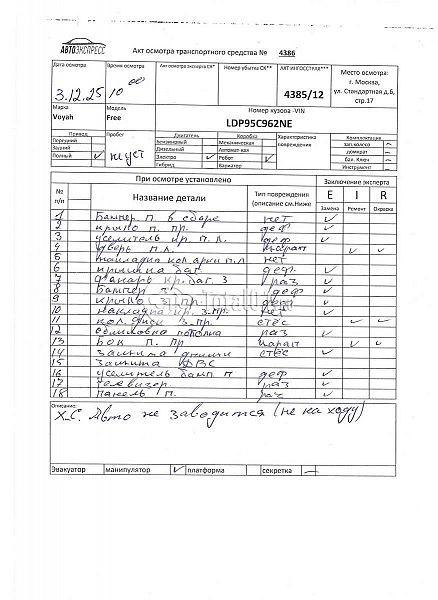 АВТОЭКСПРЕСС
Акт осмотра транспортного средства № 4386
Дата осмотра
3.12.25
Время осмотра
10 00
Акт осмотра эксперта СК*
Номер убытка СК**
АКТ ИНГОССТРАХ***
4385/12
Место осмотра:
г. Москва,
ул. Стандартная д.6,
стр.17
Марка
Voyah
Модель
Free
Номер кузова -VIN
LDP95C962NE
Привод
Передний
Задний
Полный ✓
Пробег
Двигатель
Бензиновый
Дизельный
Электро ✓
Гибрид
Коробка
Механическая
Автомат-кая
Робот ✓
Вариатор
Характеристика
повреждения
Комплектация
зап.колесо –
домкрат –
бал. Ключ –
Инструмент –
При осмотре установлено
Заключение эксперта
№
п/п
Название детали
Тип повреждения
(описание см.Ниже
E I R
Замена Ремонт Окраска
1 Бампер п. в сборе нет ✓
2 крыло п. пр. деф ✓
3 усилитель кр. п. л. деф ✓
4 дверь п. л. ✓ ✓
5 накладка кол.арки п.л нет
6 крышка баг. деф. ✓
7 фонарь кр. баг. з раз ✓
8 Бампер з. деф ✓
9 крыло з. пр. деф ✓
10 накладка кр. з. пр. нет ✓
11 кол. диск з. пр. стёс ✓ ✓
12 обшивка потолка раз ✓
13 Бок п. пр ✓ ✓
14 защита днища стёс ✓
15 защита ДВС
16 усилитель бамп. п деф ✓
17 телевизор. раз ✓
18 панель п. раз ✓
Описание:
Х.С. Авто не заводится (не на ходу)
Эвакуатор манипулятор ✓ платформа секретка –